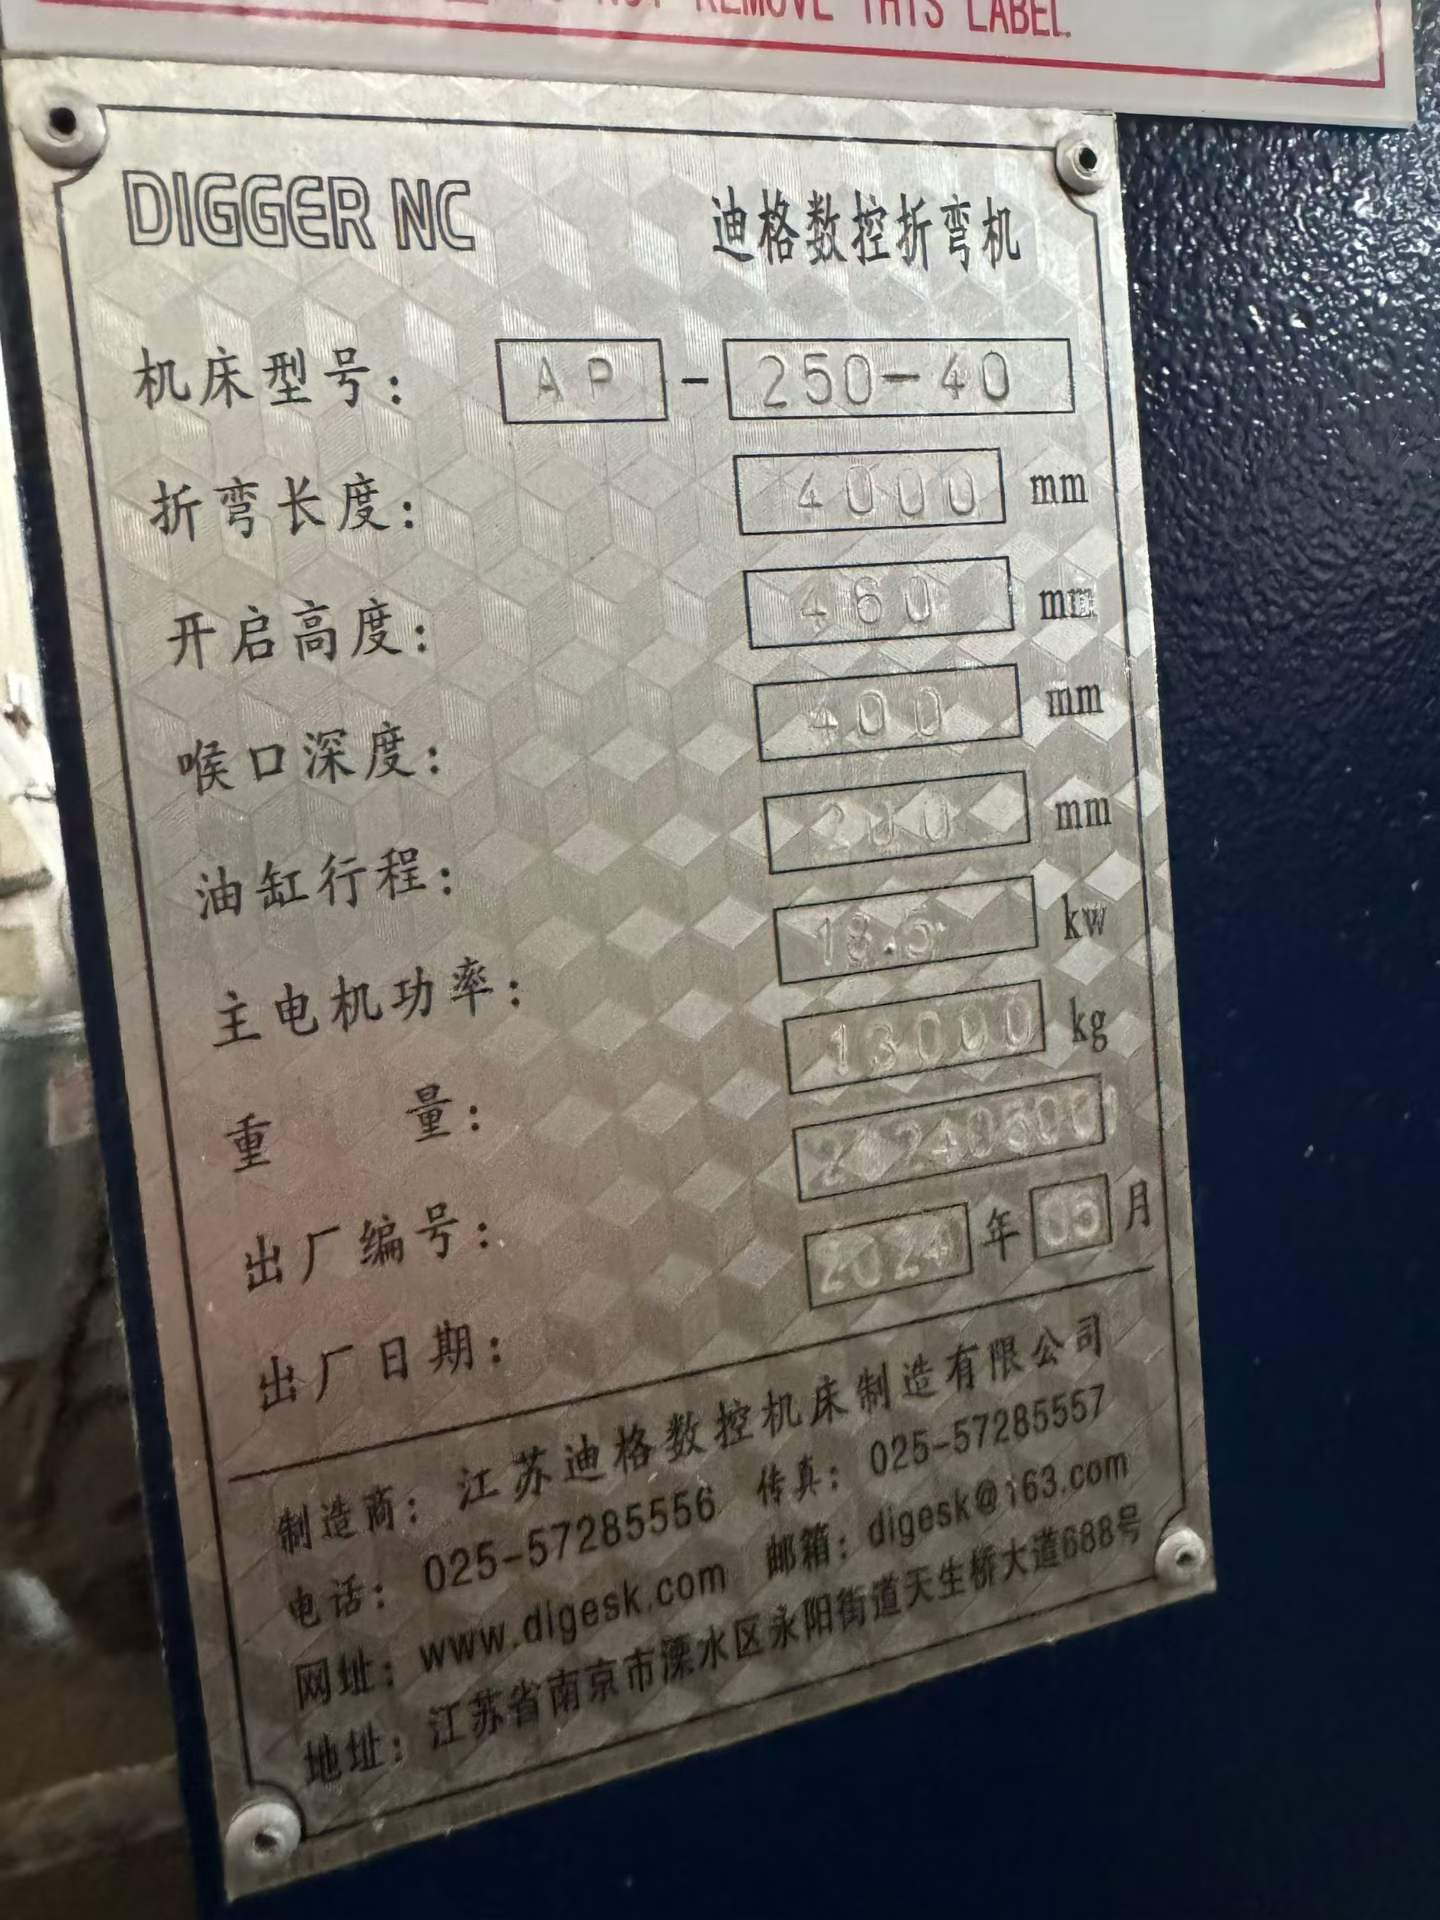 NOT REMOVE THIS LABEL.
DIGGER NC 迪格数控折弯机
机床型号: AP - 250-40
折弯长度: 4000 mm
开启高度: 460 mm
喉口深度: 400 mm
油缸行程: 200 mm
主电机功率: 18.5 kw
重 量: 13000 kg
出厂编号: 202405001
出厂日期: 2024 年 05 月
制造商: 江苏迪格数控机床制造有限公司
电话: 025-57285556 传真: 025-57285557
网址: www.digesk.com 邮箱: digesk@163.com
地址: 江苏省南京市溧水区永阳街道天生桥大道688号